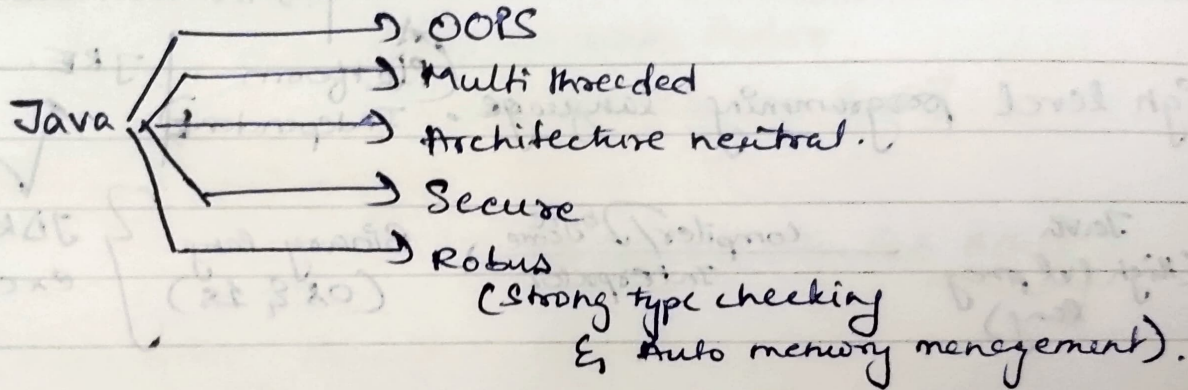 OOPS
Multi threeded
Java
Architecture neutral.
Secure
Robus
(Strong type checking
& Auto memory menegement).